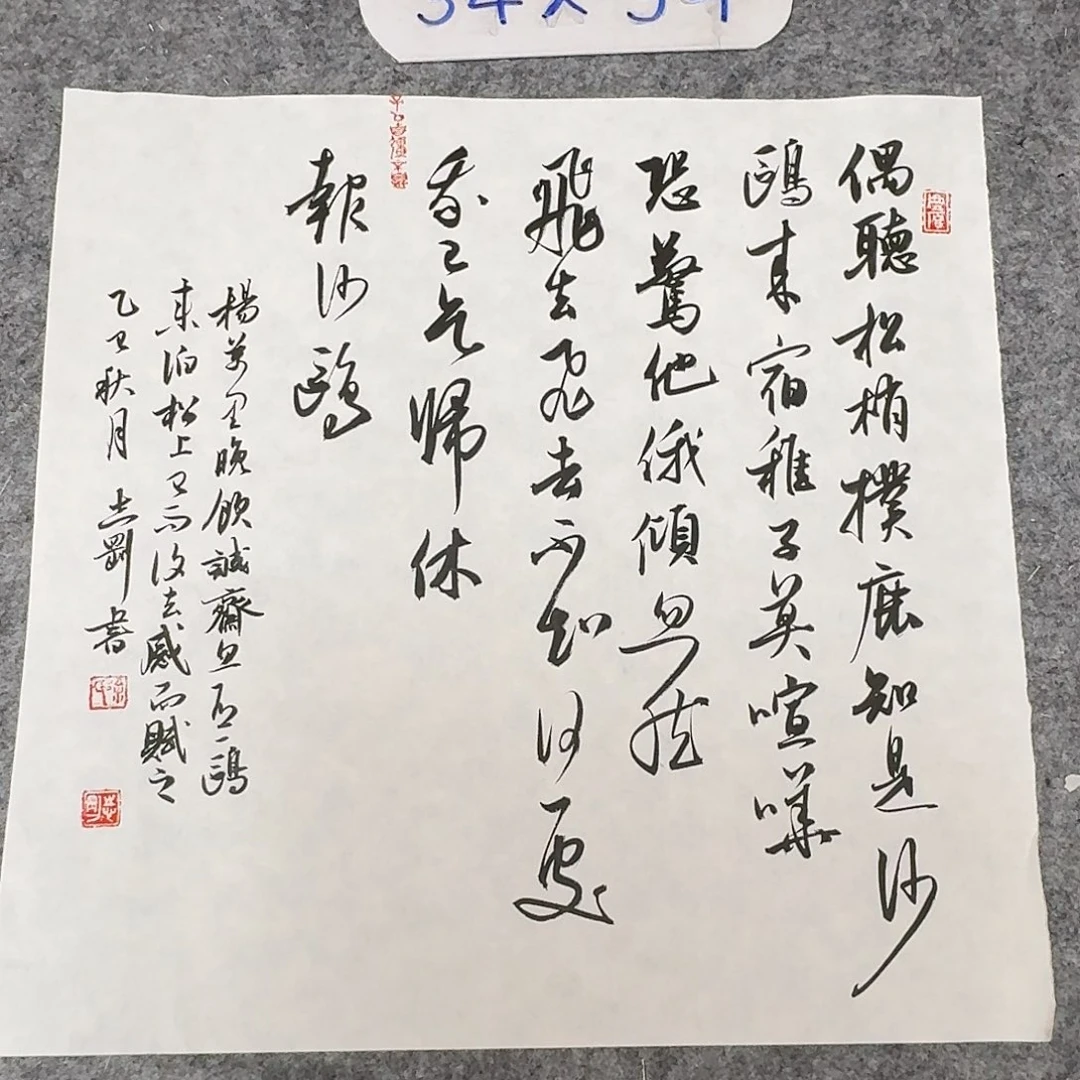 偶聽松梢撲鹿知是沙
鷗来宿稚子莫喧嘩
恐驚他俄傾忽然
飛去飛去不知何處
我已乞歸休
報沙鷗
楊萬里晚飲誠齋忽有一鷗
来泊松上已而復去感而賦之
乙巳秋月志剛書